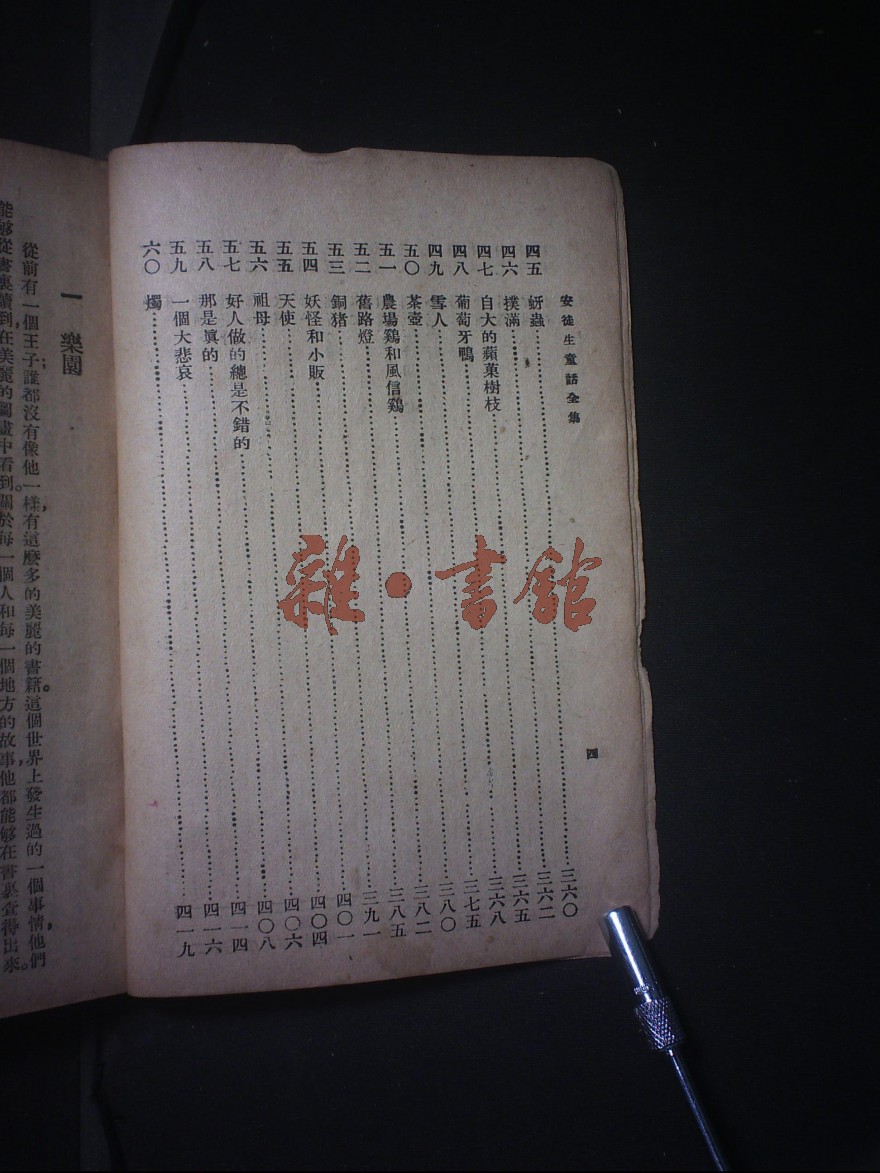 安徒生童話全集 四
四五 蚜蟲……三六〇
四六 撲滿……三六二
四七 自大的蘋菓樹枝……三六五
四八 葡萄牙鴨……三六八
四九 雪人……三七五
五〇 茶壺……三八〇
五一 農場鷄和風信鷄……三八二
五二 舊路燈……三八五
五三 銅猪……三九一
五四 妖怪和小販……四〇一
五五 天使……四〇四
五六 祖母……四〇六
五七 好人做的總是不錯的……四〇八
五八 那是眞的……四一四
五九 一個大悲哀……四一六
六〇 燭……四一九
一 樂園
從前有一個王子；誰都沒有像他一樣，有這麼多的美麗的書籍。這個世界上發生過的一個事情，他們
能够從書裏讀到，在美麗的圖畫中看到。關於每一個人和每一個地方的故事，他都能够在書裏查得出來。
雜·書館